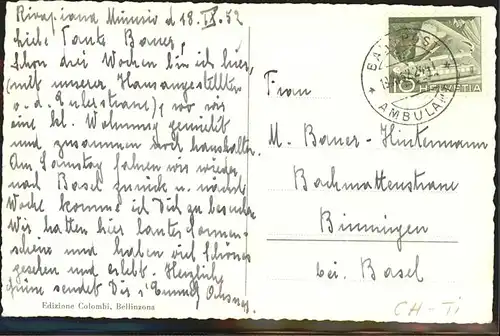 Rivapiana Minusio d 18. IX. 52
Liebe Tante Bauer,
Schon drei Wochen bin ich hier,
(mit unserer Hausangestellten
v. d. Eulerstrasse), wo wir
eine kl. Wohnung gemietet
und zusammen doch haushalten.
Am Samstag fahren wir wieder
nach Basel zurück u. nächste
Woche komme ich Dich zu besuchen.
Wir hatten hier lauter Sonnen-
schein und haben viel Schönes
gesehen und erlebt. Herzliche
Grüsse sendet Dir s'Emmy
Edizione Colombi, Bellinzona
10 HELVETIA
AMBULANT
Frau
M. Bauer-Hintermann
Bachmattenstrasse
Binningen
bei Basel
CH-TI